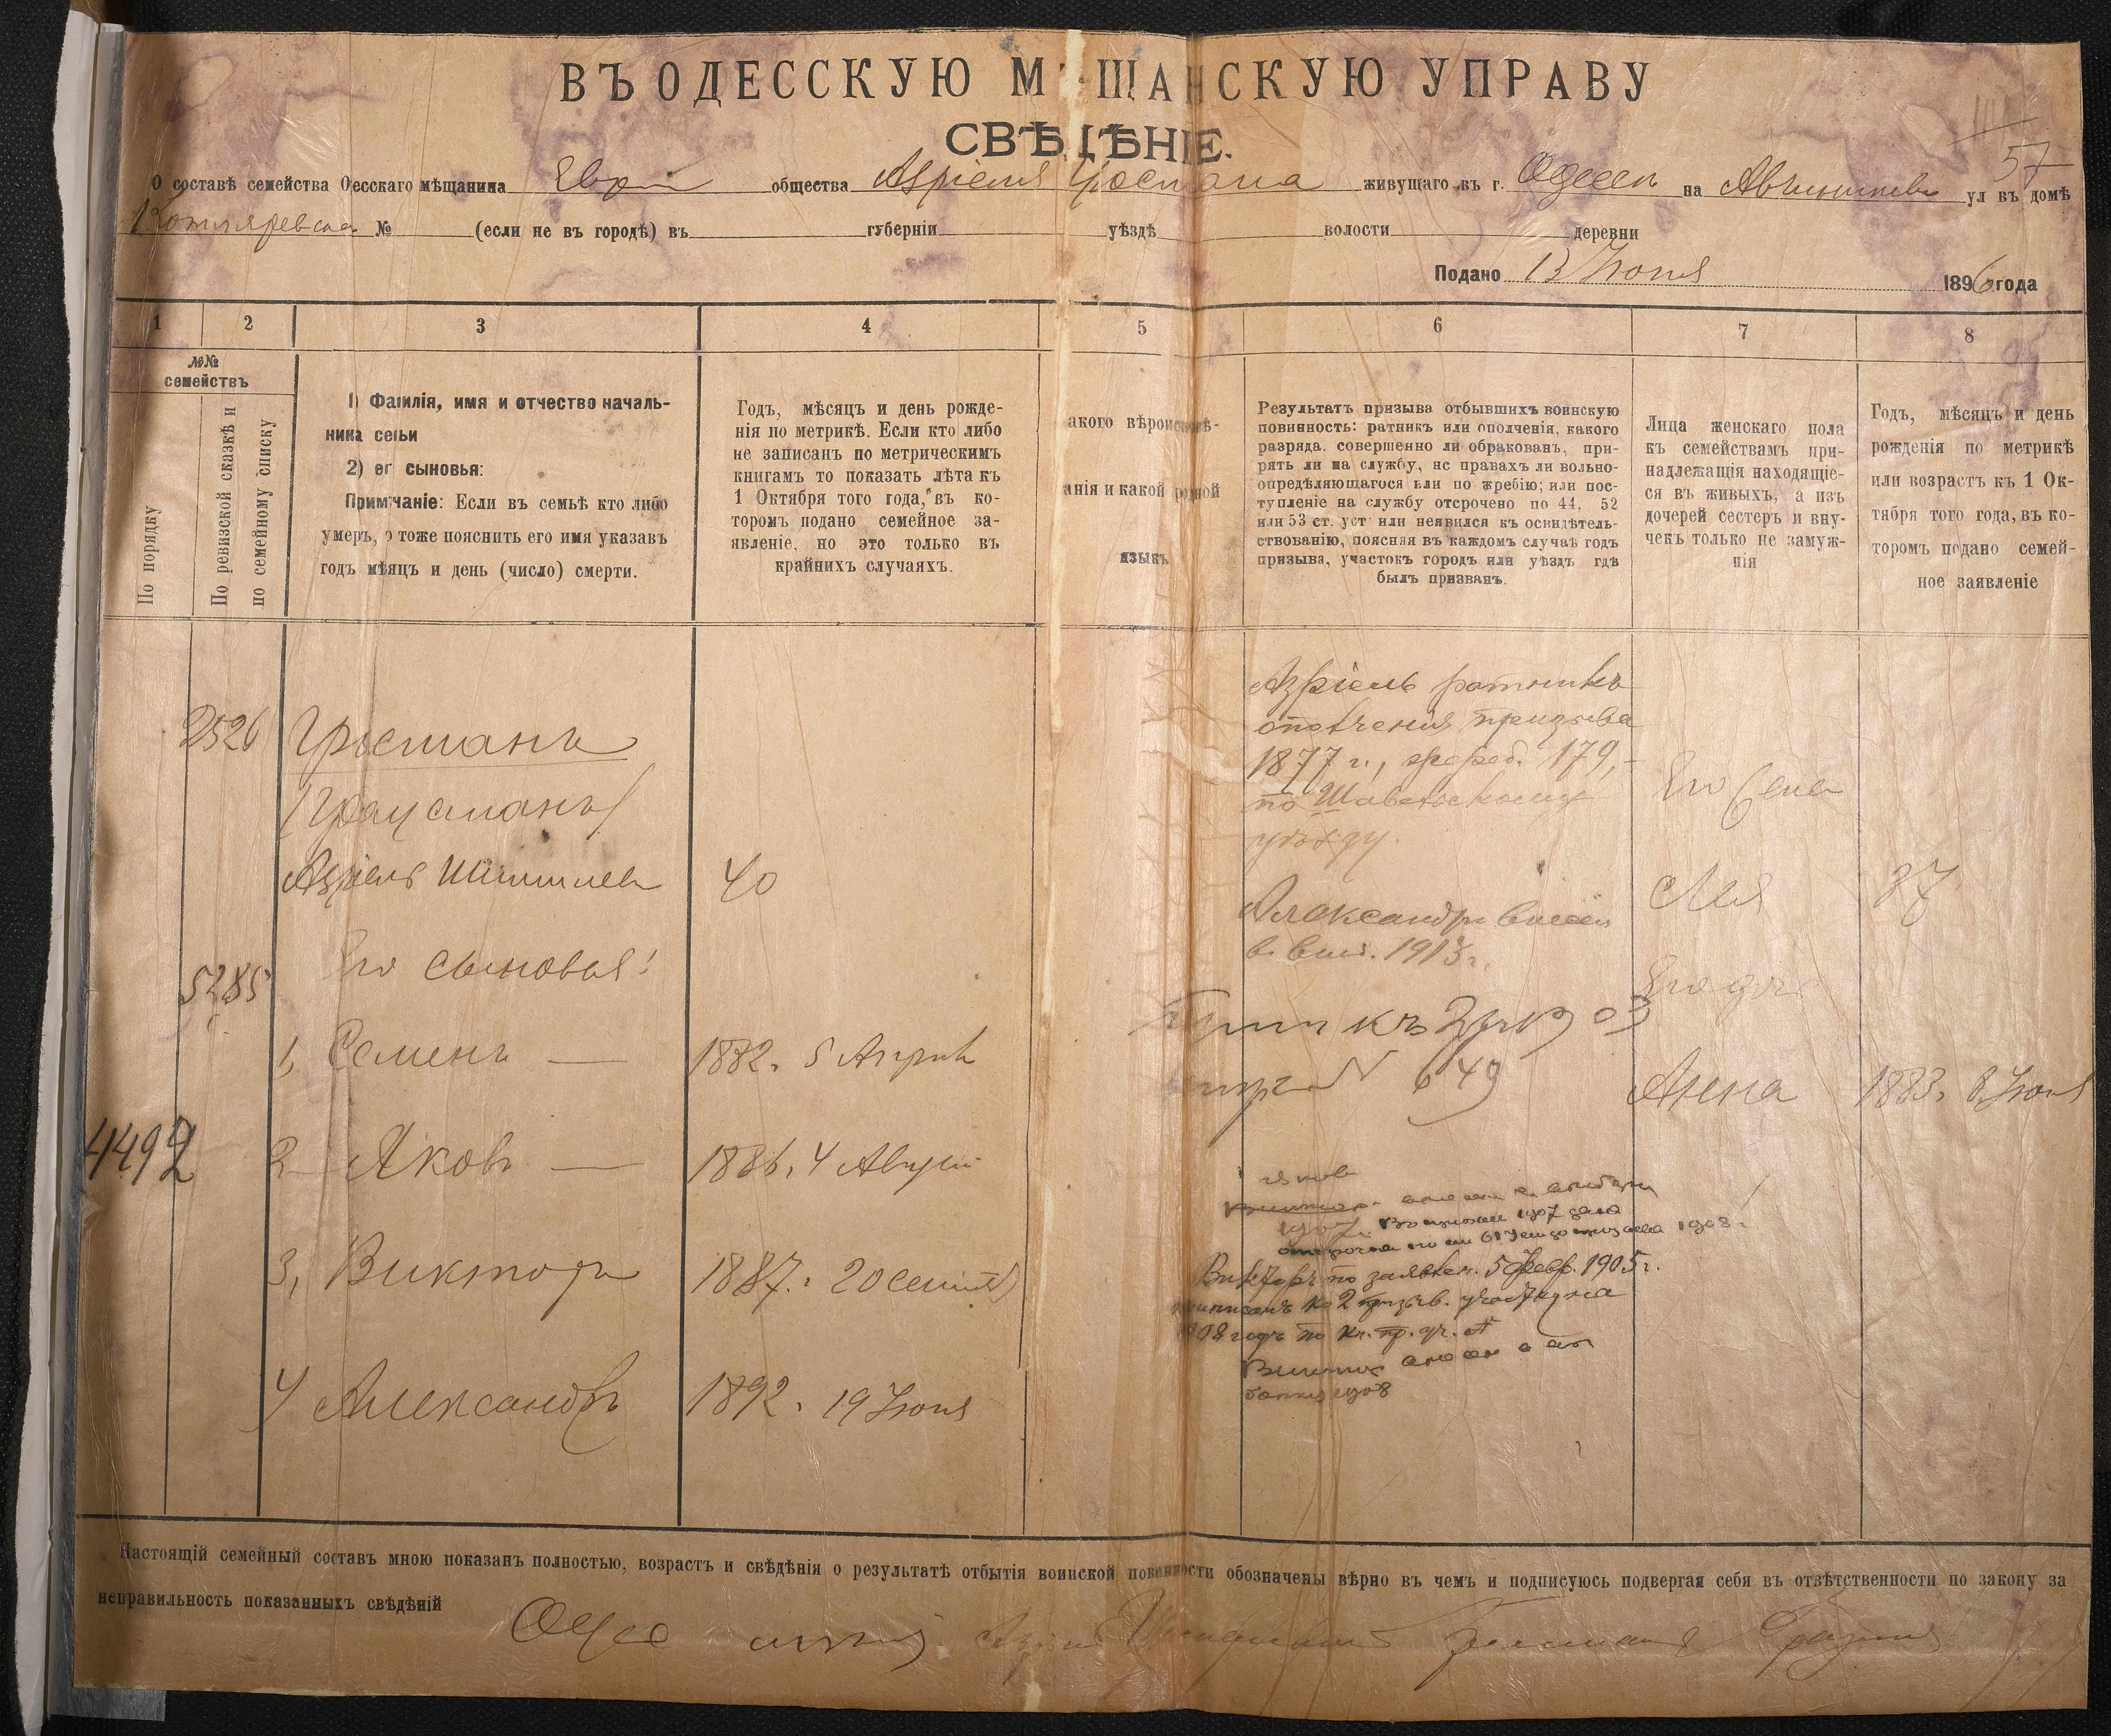 ВЪ ОДЕССКУЮ М ЩАНСКУЮ УПРАВУ
СВѢДѢНІЕ.
57
О составѣ семейства О есскаго мѣщанина Евр общества Азріеля Гросмана живущаго въ г. Одессѣ на ул въ домѣ
Котляревска № (если не въ городѣ) въ губерніи уѣздѣ волости деревни
Подано 13 Іюня 1896 года
1 2 3 4 5 6 7 8
№№ семействъ
По порядку
По ревизской сказкѣ и
по семейному списку
1) Фамилія, имя и отчество началь-
ника семьи
2) ег сыновья:
Примѣчаніе: Если въ семьѣ кто либо
умеръ, о тоже пояснить его имя указавъ
годъ мѣяцъ и день (число) смерти.
Годъ, мѣсяцъ и день рожде-
нія по метрикѣ. Если кто либо
не записанъ по метрическимъ
книгамъ то показать лѣта къ
1 Октября того года, въ ко-
торомъ подано семейное за-
явленіе, но это только въ
крайнихъ случаяхъ.
акого вѣроисповѣ-
анія и какой родной
языкъ
Результатъ призыва отбывшихъ воинскую
повинность: ратникъ или ополченія, какого
разряда, совершенно ли обракованъ, при-
рять ли на службу, нс правахъ ли вольно-
опредѣляющагося или по жребію; или пос-
тупленіе на службу отсрочено по 44, 52
или 53 ст. уст или неявился къ освидѣтель-
ствованію, поясняя въ каждомъ случаѣ годъ
призыва, участокъ городъ или уѣздъ гдѣ
былъ призванъ.
Лица женскаго пола
къ семействамъ при-
надлежащія находящіе-
ся въ живыхъ, а изъ
дочерей сестеръ и вну-
чекъ только не замуж-
нія
Годъ, мѣсяцъ и день
рожденія по метрикѣ
или возрастъ къ 1 Ок-
тября того года, въ ко-
торомъ подано семей-
ное заявленіе
2526 Гросманъ
(Граусманъ)
Азріель 40
Его сыновья:
5285
1, Семенъ — 1882. 5 Апрѣл
4492
2 Яковъ — 1886. 4 Август
3, Викторъ 1887. 20 сентяб
4 Александръ 1892. 19 Іюня
Азріель ратникъ
ополченія призыва
1877 г., жереб. 179,
по
уѣзду.
Александръ внесен
в. 1913 г.
къ 2 03
N 649
Яковъ
1907. 1907 дана
отсрочка по 61 до призыва 1908 г.
Викторъ по заявлен. 5 Февр. 1905 г.
приписанъ ко 2 призыв. участку на
1908 годъ по кн. пр. уч. №
1908
Его
Лея 37
Его доч
Анна 1883. 8 Іюня
Настоящій семейный составъ мною показанъ полностью, возрастъ и свѣдѣнія о результатѣ отбытія воинской повинности обозначены вѣрно въ чемъ и подписуюсь подвергая себя въ отвѣтственности по закону за
неправильность показанныхъ свѣдѣній